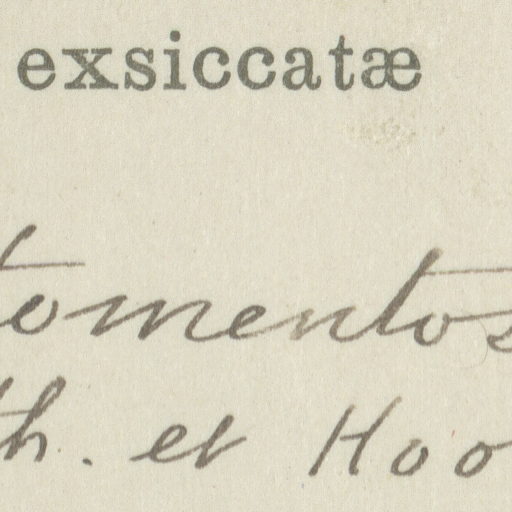 exsiccatæ
tomentos
th. et Hoo